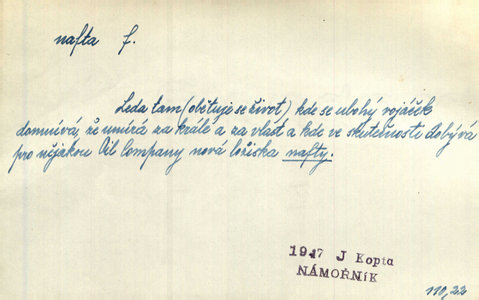 nafta f.
Leda tam (obětuje se život) kde se ubohý vojáček
domnívá, že umírá za krále a za vlast a kde ve skutečnosti dobývá
pro nějakou Oil Company nová ložiska nafty.
1947 J Kopta
NÁMOŘNÍK
110,22